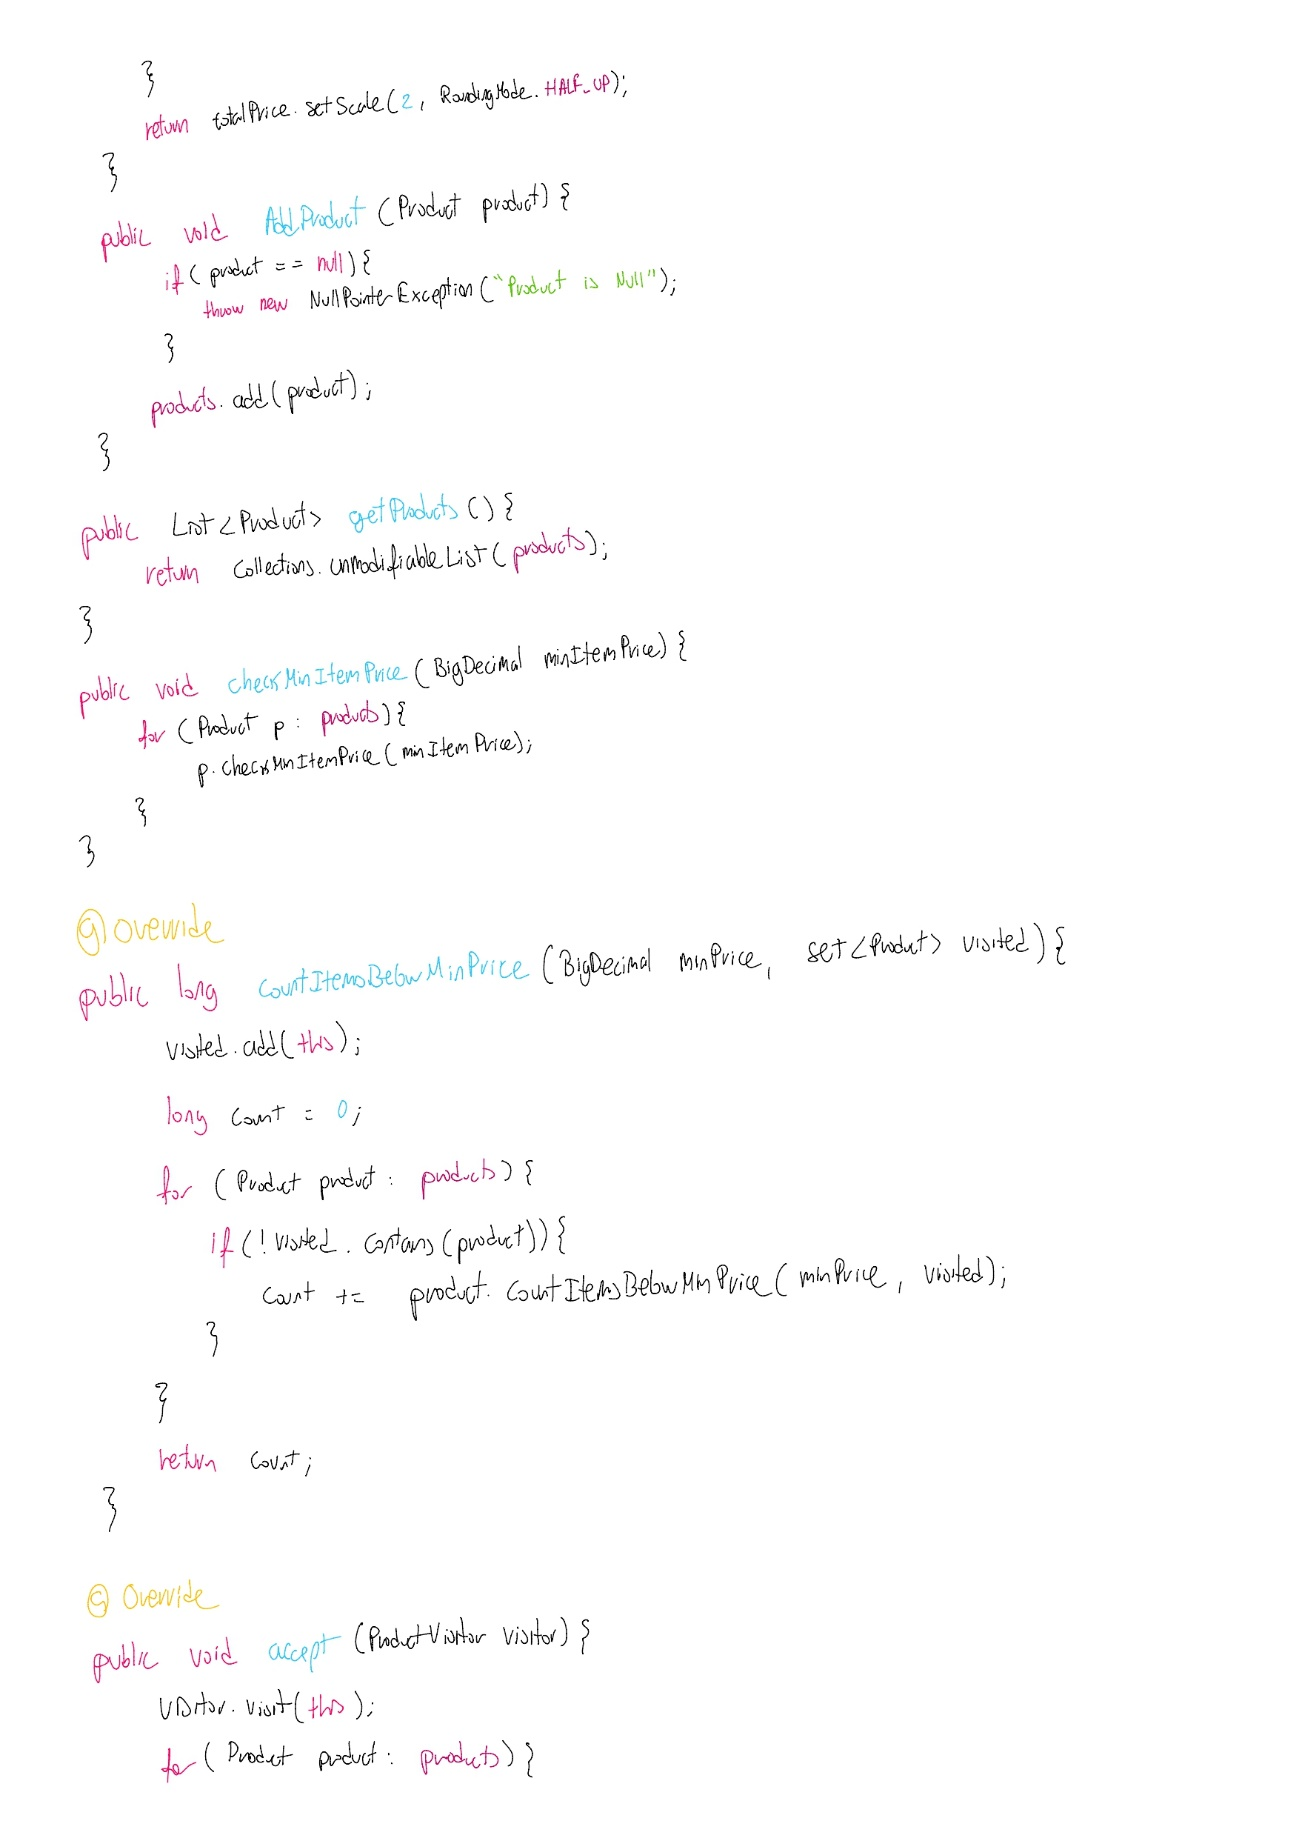 }
return totalPrice.setScale(2, RoundingMode.HALF_UP);
}
public void AddProduct (Product product) {
if( product == null){
throw new NullPointerException("Product is Null");
}
products.add(product);
}
public List<Product> getProducts () {
return Collections.unmodifiableList(products);
}
public void checkMinItemPrice (BigDecimal minItemPrice) {
for (Product p : products){
p.checkMinItemPrice(minItemPrice);
}
}
@Override
public long countItemsBelowMinPrice (BigDecimal minPrice, set<Product> visited) {
visited.add(this);
long count = 0;
for (Product product : products) {
if (!visited.contains(product)) {
count += product.countItemsBelowMinPrice(minPrice, visited);
}
}
return count;
}
@Override
public void accept (ProductVisitor visitor) {
visitor.visit(this);
for ( Product product : products) }